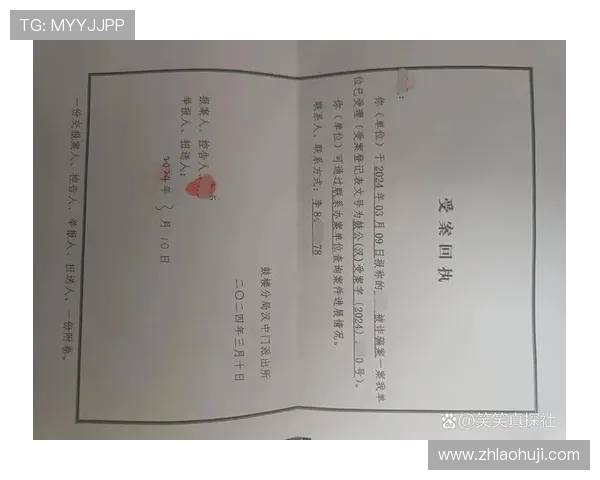 TG: MYYJJPP
受案回执
：
你（单位）于2024年03月09日报称的 被诈骗案一案我单
位已受理（受案登记表文号为鼓公(汉)受案字〔2024〕 0号）。
你（单位）可通过联系办案单位查询案件进展情况。
联系人、联系方式：李84 78
鼓楼分局汉中门派出所
二〇二四年三月十日
报案人、控告人、
举报人、扭送人：
2024年3月10日
一份交报案人、控告人、举报人、扭送人，一份附卷。
百家号/笑笑真探社
www.zhlaohuji.com